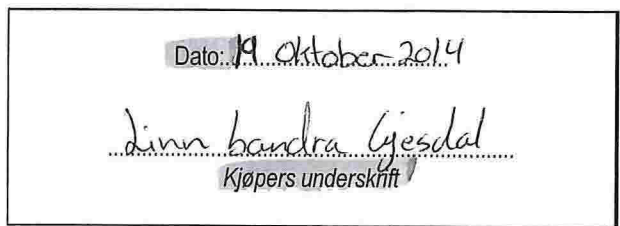 Dato: 19 Oktober 2014
Linn Sandra Gjesdal
Kjøpers underskrift